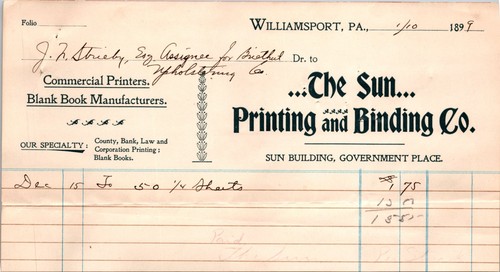 Folio
WILLIAMSPORT, PA., 1/10 1899
J. N. Strieby, Esq Assignee for Dr. to
Upholstering Co
Commercial Printers.
Blank Book Manufacturers.
...The Sun...
Printing and Binding Co.
OUR SPECIALTY: County, Bank, Law and
Corporation Printing;
Blank Books.
SUN BUILDING, GOVERNMENT PLACE.
Dec 15 To 50 1/4 Sheets $1 75